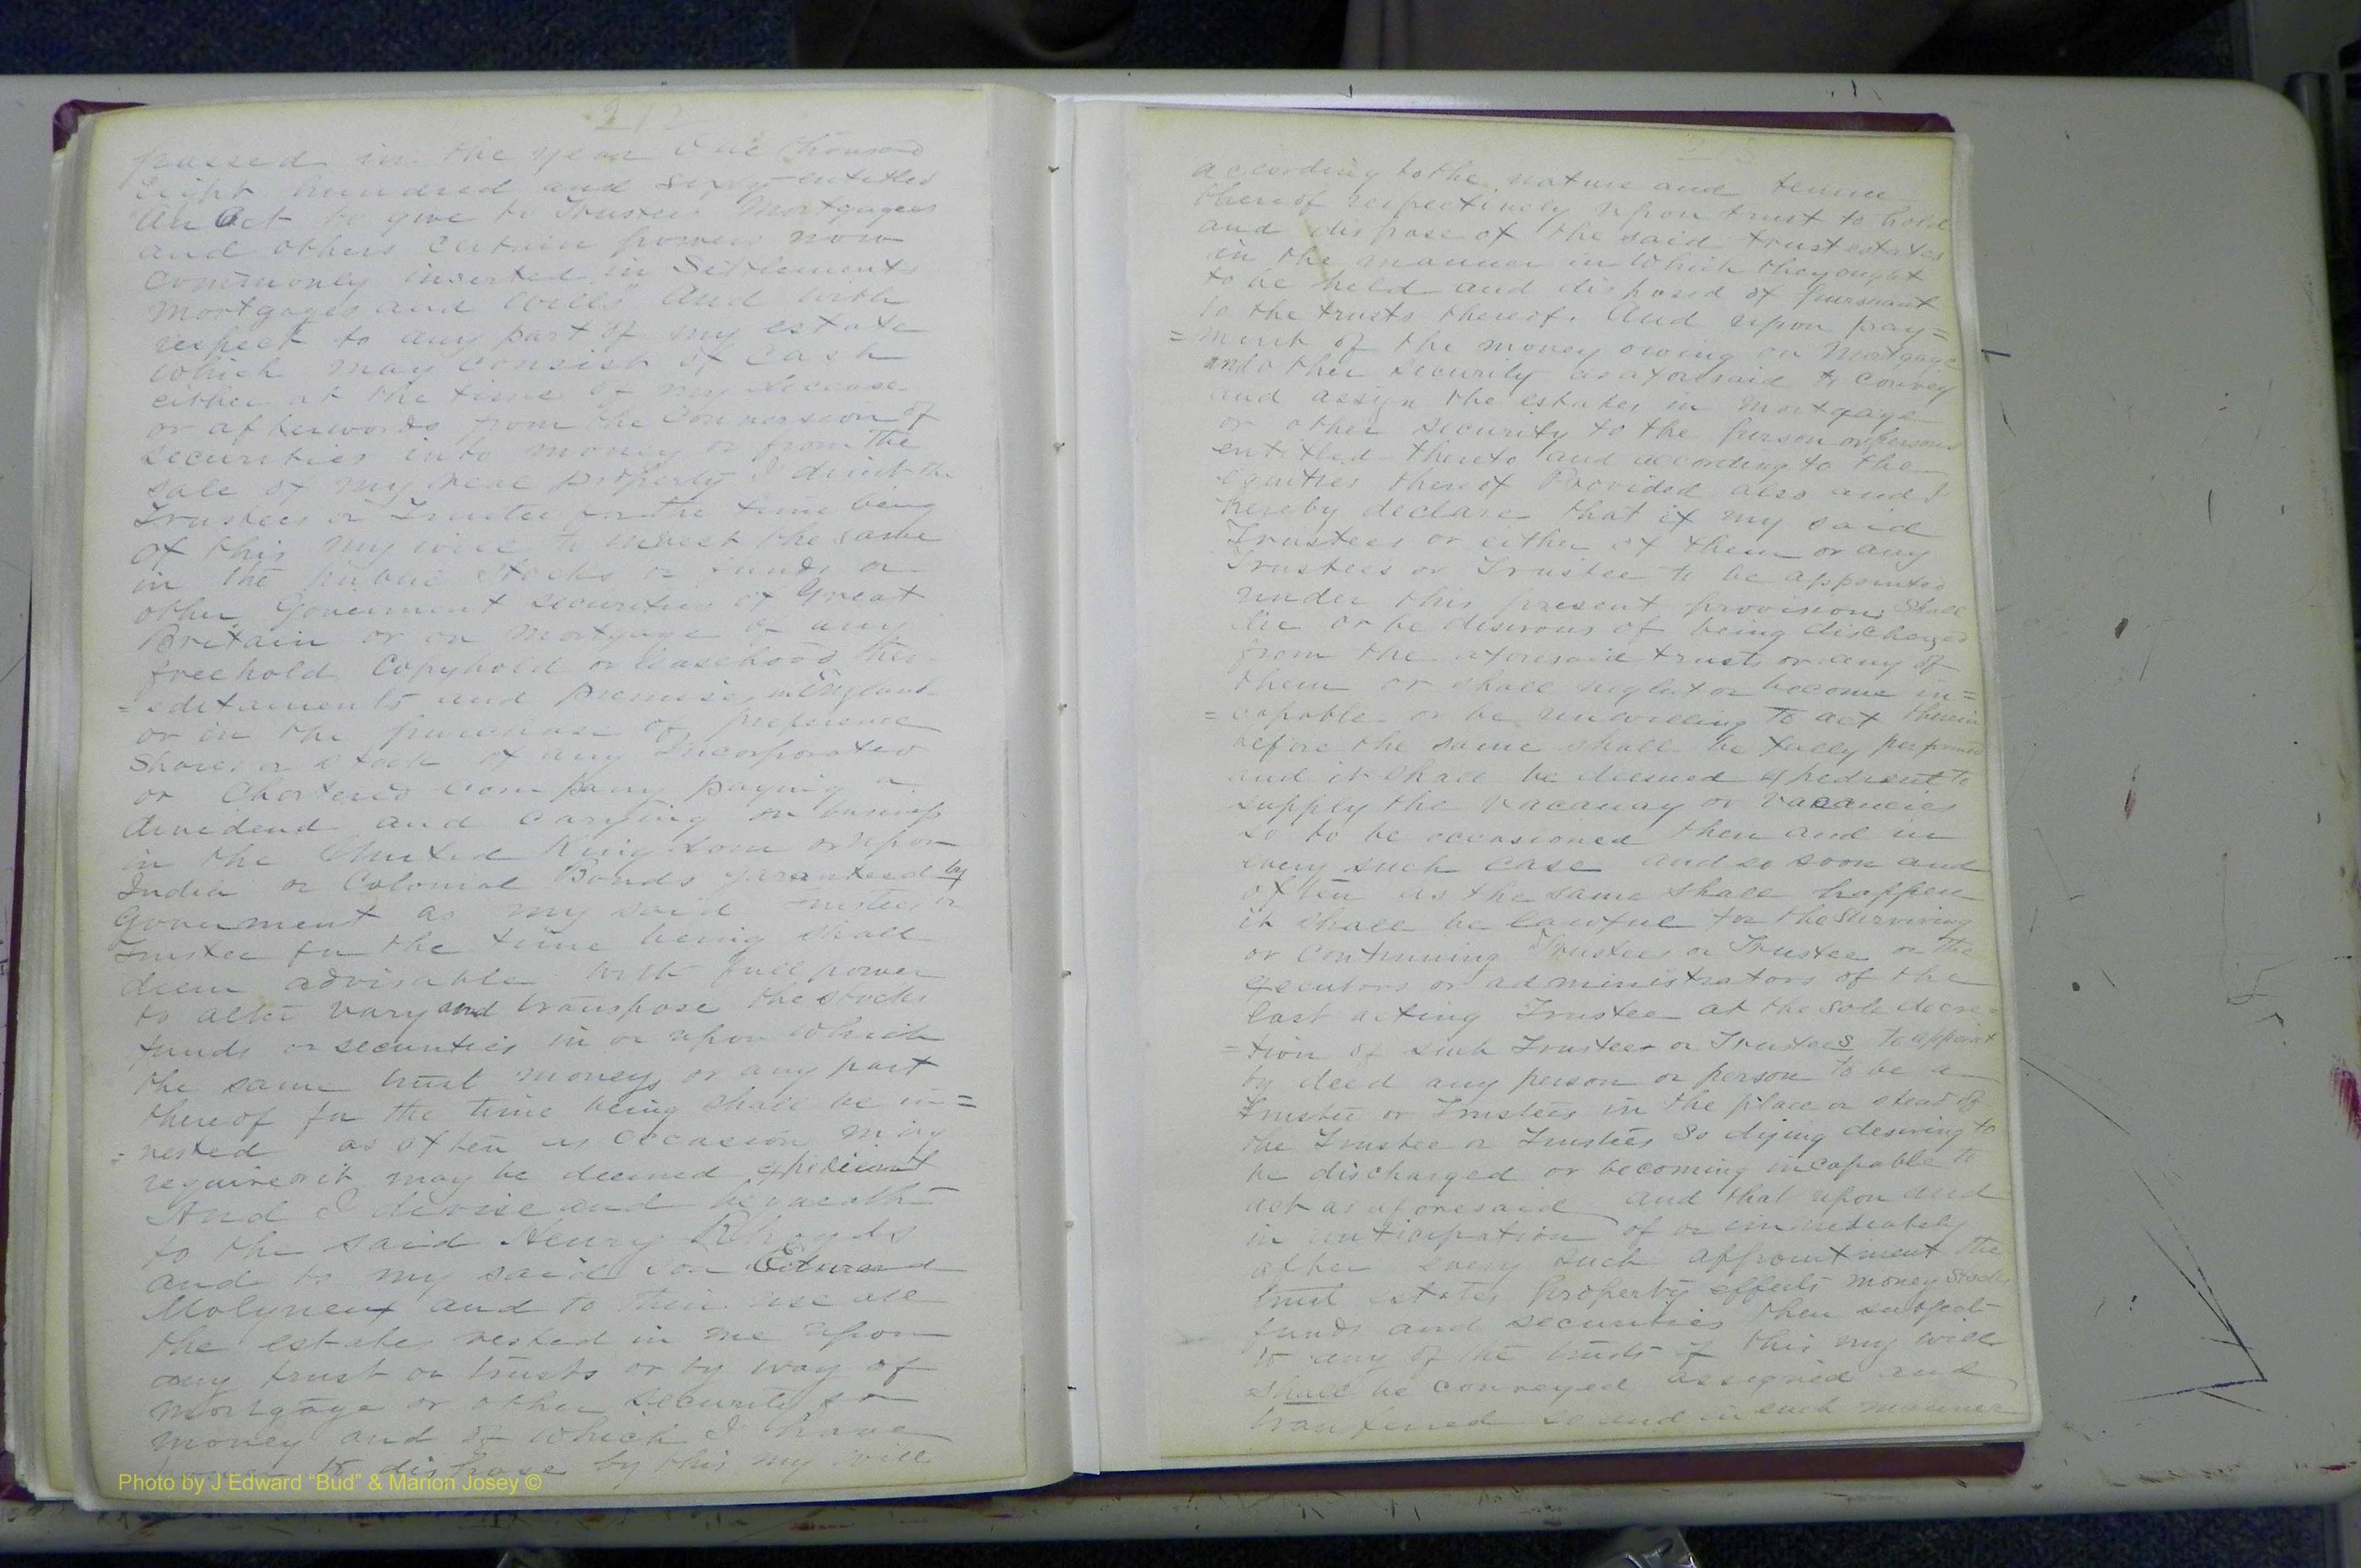 212
passed in the year One thousand
Eight hundred and sixty entitled
"An Act to give to Trustees Mortgagees
and others certain powers now
commonly inserted in Settlements
Mortgages and Wills" And with
respect to any part of my estate
which may consist of Cash
either at the time of my decease
or afterwards from the Conversion of
securities into money or from the
sale of my real property I direct the
Trustees or Trustee for the time being
of this my will to invest the same
in the public stocks or funds or
other Goverment securities of Great
Britain or on Mortgage of any
freehold Copyhold or leasehold Her-
=editaments and premises in England
or in the purchase of preference
Shares or Stock of any Incorporated
or Chartered company paying a
dividend and carrying on business
in the United Kingdom or upon
India or Colonial Bonds garanteed by
Goverment as my said Trustees or
Trustee for the time being shall
deem advisable with full power
to alter vary and transpose the stocks
funds or securities in or upon which
the same trust moneys or any part
thereof for the time being shall be in=
=vested as often as occasion may
require or it may be deemed expedient
And I devise and bequeath
to the said Henry Rhoyds
and to my said son Edward
Molyneux and to their use all
the estates vested in me upon
any trust or trusts or by way of
mortgage or other security for
money and of which I have
to dispose by this my will
Photo by J Edward “Bud” & Marion Josey ©
according to the nature and tenure
thereof respectively upon trust to hold
and dispose of the said trust estates
in the manner in which they ought
to be held and disposed of pursuant
to the trusts thereof. And upon pay=
=ment of the money owing on Mortgage
and other security as aforesaid to convey
and assign the estates in mortgage
or other security to the person or persons
entitled thereto and according to the
equities thereof Provided also and I
hereby declare that if my said
Trustees or either of them or any
Trustees or Trustee to be appointed
under this present provision shall
die or be desirous of being discharged
from the aforesaid trusts or any of
them or shall neglect or become in=
=capable or be unwilling to act therein
before the same shall be fully performed
and it shall be deemed expedient to
supply the vacancy or vacancies
so to be occasioned then and in
every such case and so soon and
often as the same shall happen
it shall be lawful for the surviving
or continuing Trustees or Trustee or the
executors or administrators of the
last acting Trustee at the sole discre=
=tion of such Trustees or Trustees to appoint
by deed any person or person to be a
Trustee or Trustees in the place or stead of
the Trustee or Trustees so dying desiring to
be discharged or becoming incapable to
act as aforesaid and that upon and
in anticipation of or immediately
after every such appointment the
trust estates property effects money stocks
funds and securities then subject
to any of the trusts of this my will
shall be conveyed assigned and
tranferred so and in such manner